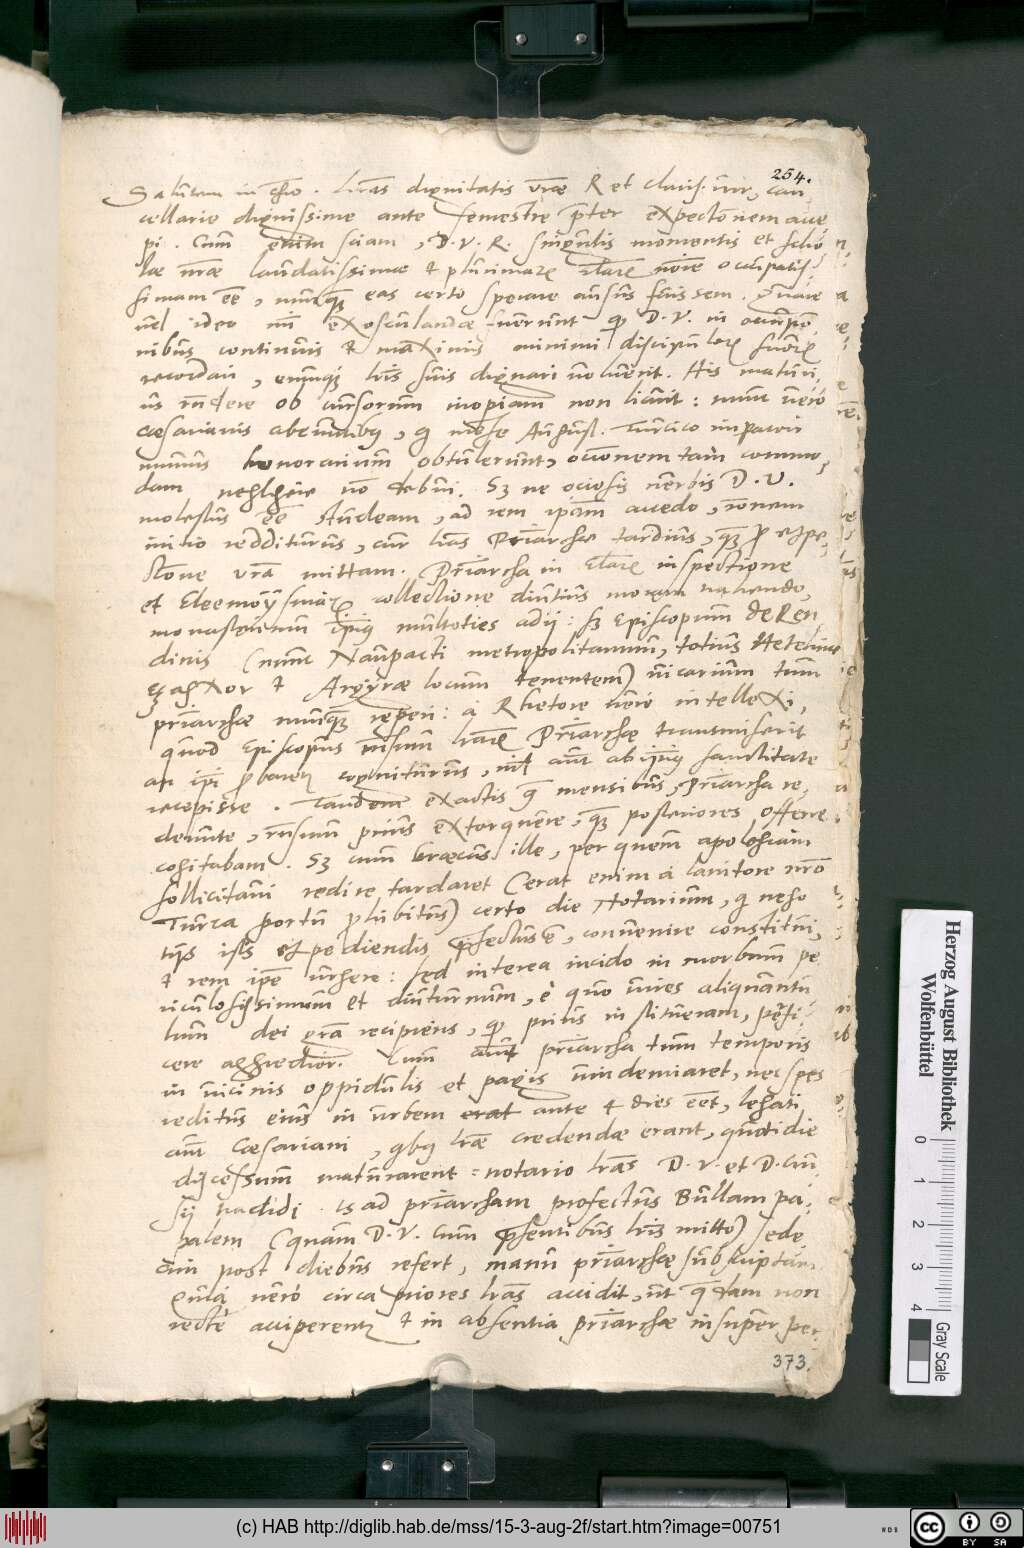 254.
Salutem in Chro. Lit̄as dignitatis vr̄ae R et clariss. vir, can-
cellarie dignissime ante semestre p̄ter expecto͞nem acce-
pi. Cum enim sciam, D. V. R. singulis momentis et scho-
lae nr̄ae laudatissimae et plurimarū no͞ie occupatis-
simam ēē, nunquā eas certo sperare ausus fuissem. Quare
vel ideo exosculandae fuerunt D. V. in occupo͞-
nibus continuis et maximis minimi discipulorū suorū
recordari, eumque lr̄is suis dignari voluerit. His maturi-
us rn̄dere ob cursorum inopiam non licuit: nunc vero
Caesarianis abeuntibus, qui mense August. Turcico imp̄atori
munus honorarium obtulerunt, occo͞nem tam commo-
dam negligere nō debui. Sz ne ociosis verbis D. V.
molestus ēē studeam, ad rem ip̄am accedo, ro͞nem
initio redditurus, cur lr̄as Pr̄iarchae tardius, quā p̄ expe-
cto͞ne vr̄a mittam. Pr̄iarcha in inspectione
et Eleemosynarū collectione diutius moram nahendo,
monasterium ip̄ius multoties adii: sz Episcopum de Ren-
dinis (nunc Naupacti metropolitanum, totius
ἔξαρχον et Argyrae locum tenentem) vicarium tum
pr̄iarchae nunquā reperi: à Rhetore vero intellexi,
quod Episcopus visum Pr̄iarchae transmiserit
an ip̄i p̄barentur cogniturus, nil aut̄ ab ip̄ius sanctitate
recepisse. Tandem exactis mensibus, Pr̄iarcha re-
deunte, rursum prius extorquere, quā posteriores offerre
cogitabam. Sz cum Graecus ille, per quem apologiam
sollicitavi redire tardaret (erat enim à Ianitore nr̄o
Turca portu p̄hibitus) certo die Notarium, qui nego-
tijs istis expediendis p̄fectus ē, convenire constitui,
et rem ip̄e urgere: sed interea incido in morbum pe-
riculosissimum et diuturnum, è quo vires aliquantu-
lum dei gr̄a recipiens, prius institueram, p̄fi-
cere aggredior. Cum aut̄ pr̄iarcha tum temporis
in vicinis oppidulis et pagis vindemiaret, nec spes
reditus eius in urbem erat ante 4 dies eet, legati
aut̄ Caesariani, quibus lr̄ae credendae erant, quotidie
discessum maturarent: notario lr̄as D. V. et D. Cru-
sij tradidi. Is ad pr̄iarcham profectus Bullam pa-
palem (quam D. V. cum p̄sentibus lr̄is mitto) sede-
cim post diebus refert, manu pr̄iarchae subscriptam.
Quia vero circa priores lr̄as accidit, ut quaedam non
recte acciperentur et in absentia pr̄iarchae insuper per-
373.
Herzog August Bibliothek
Wolfenbüttel
0 1 2 3 4
Gray Scale
(c) HAB http://diglib.hab.de/mss/15-3-aug-2f/start.htm?image=00751
WDB
cc BY SA